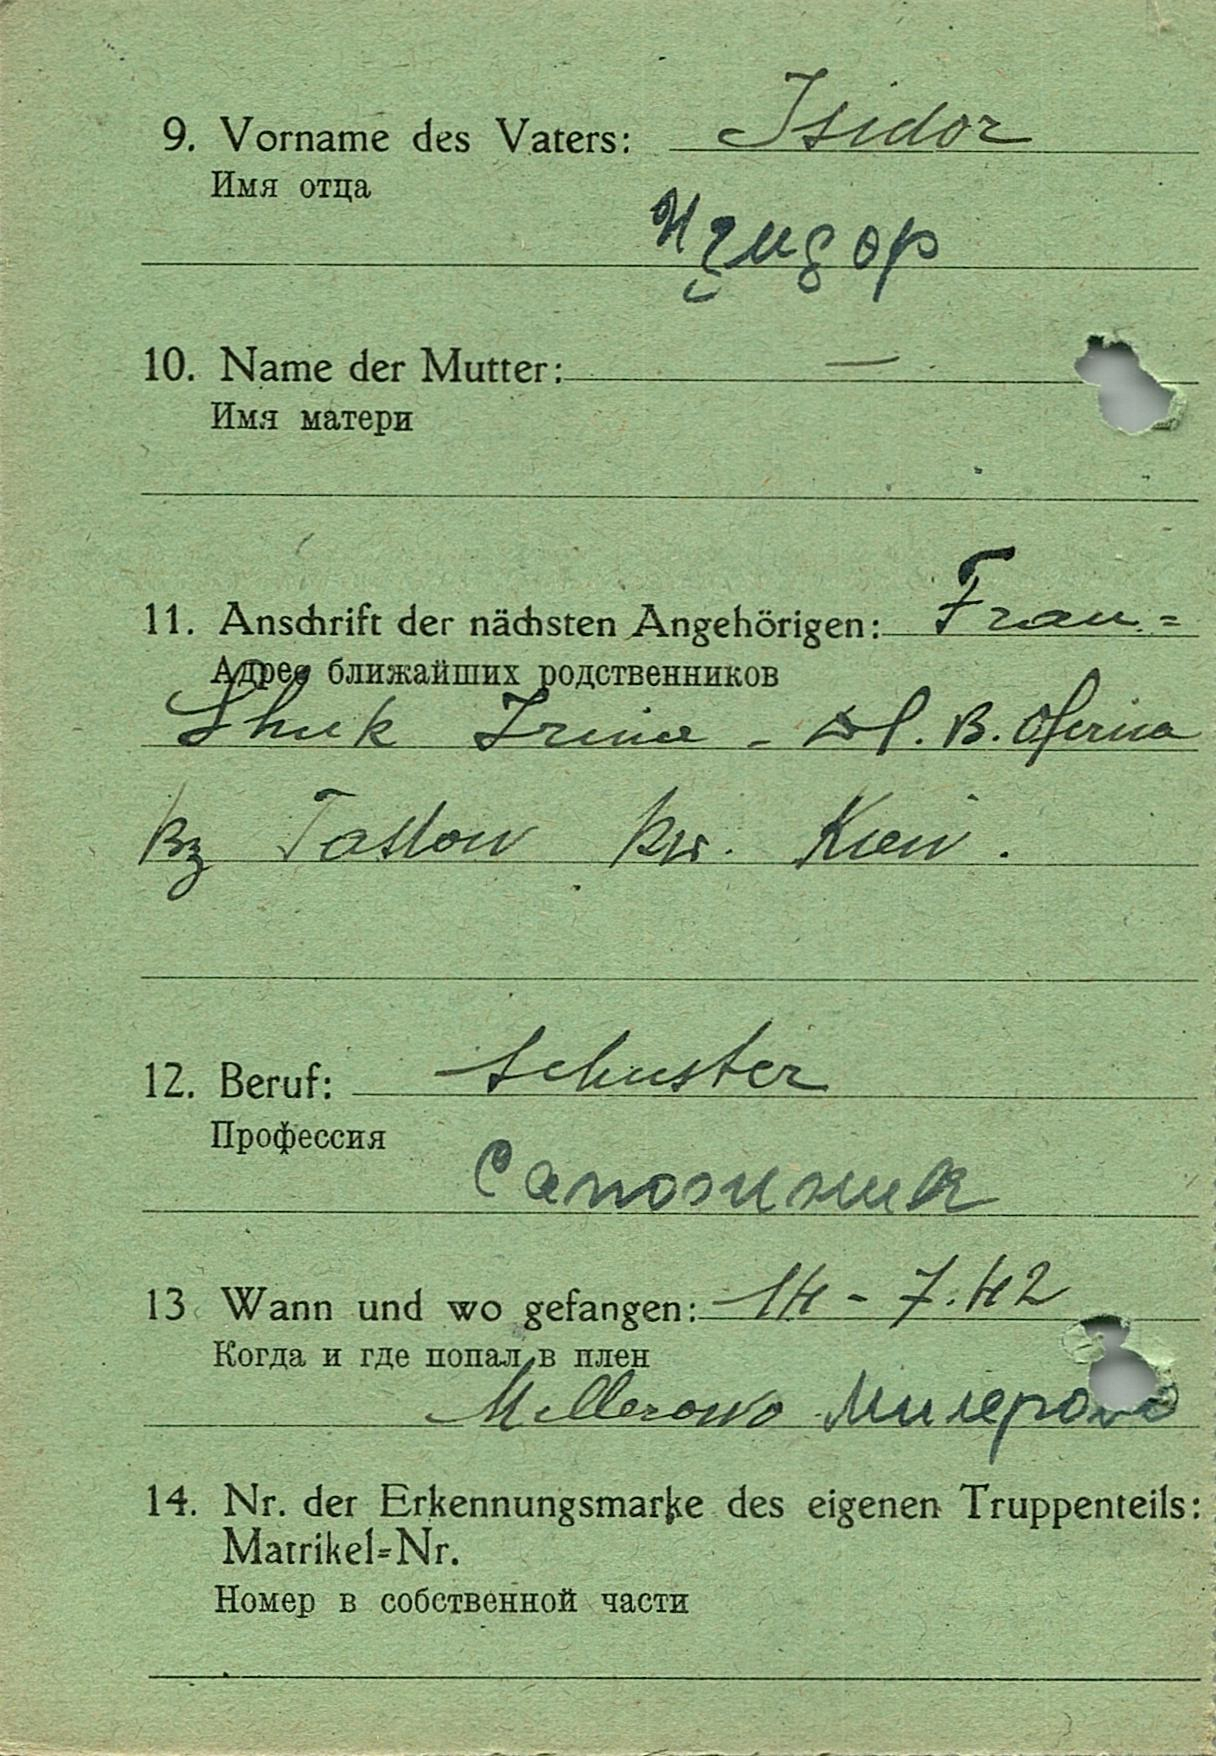 9. Vorname des Vaters: Isidor
Имя отца
Изидор
10. Name der Mutter: —
Имя матери
11. Anschrift der nächsten Angehörigen: Frau=
Адрес ближайших родственников
Shuk Irina - Df. B. Oferna
Bz Tastow Kr. Kiew.
12. Beruf: Schuster
Профессия
Сапозшник
13 Wann und wo gefangen: 14 - 7.42
Когда и где попал в плен
Millerowo Милерово
14. Nr. der Erkennungsmarke des eigenen Truppenteils:
Matrikel=Nr.
Номер в собственной части